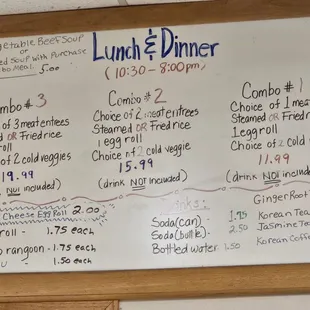 getable Beef Soup
or
ed Soup with Purchase
bo Meal 5.00
Lunch & Dinner
(10:30 - 8:00pm)
ombo #3
of 3 meat entrees
Steamed OR Fried rice
egg roll
of 2 cold veggies
19.99
NOT included)
Combo #2
Choice of 2 meat entrees
Steamed OR Fried rice
1 egg roll
Choice of 2 cold veggie
15.99
(drink NOT included)
Combo #1
Choice of 1 meat
Steamed OR Fried
1 egg roll
Choice of 2 Cold
11.99
(drink NOT inclu
Cheese Egg Roll 2.00
roll - 1.75 each
rangoon - 1.75 each
- 1.50 each
ks:
Soda (can) - 1.75
Soda (bottle) - 2.50
Bottled water 1.50
Ginger Root
Korean Tea
Jasmine Te
Korean Coffe